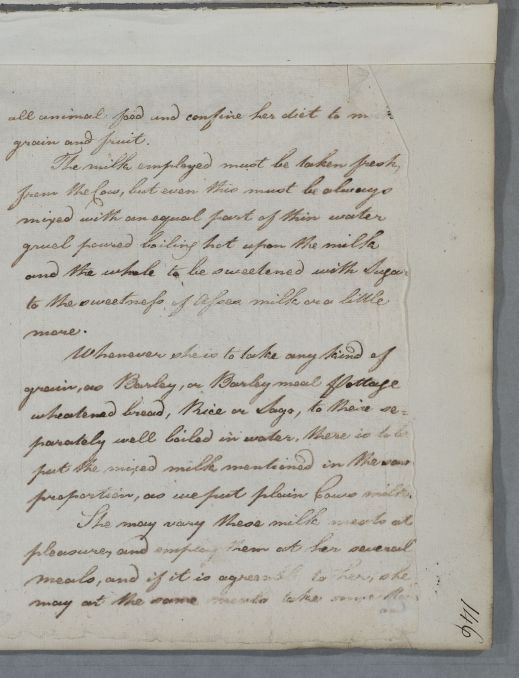 all animal food and confine her diet to m
grain and fruit.
The milk employed must be taken fresh,
from the Cow, but even this must be always
mixed with an equal part of thin water
gruel poured boiling hot upon the milk
and the whole to be sweetened with Sugar
to the sweetness of Asses milk or a little
more.
Whenever she is to take any kind of
grain, as Barley, or Barley meal Pottage
wheatened bread, Rice or Sago, to these se=
parately well boiled in water, there is to be
put the mixed milk mentioned in the same
proportion, as we put plain Cows milk.
She may vary these milk meals at
pleasure, and employ them at her several
meals, and if it is agreeable to her, she
may at the same meals take some
and
146